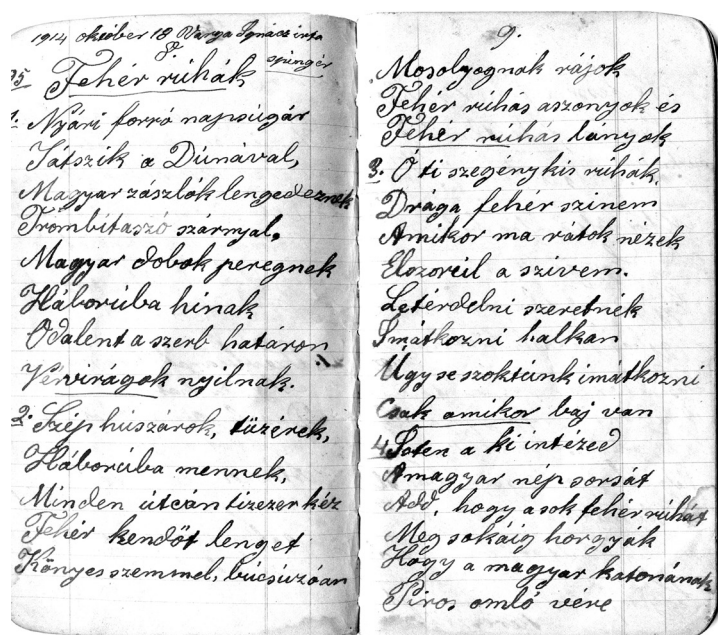 1914 október 18 Varga Ignácz irta
8.
Fehér rúhák
1. Nyári forró napsúgár
Játszik a Dúnával,
Magyar zászlók lengedeznek
Trombitaszó szárnyal,
Magyar dobok peregnek
Háborúba hinak
Odalent a szerb határon
Vérvirágok nyilnak.
2. Szép húszárok, tüzérek,
Háborúba mennek,
Minden útcán tizezer kéz
Fehér kendőt lenget
Könyes szemmel, búcsúzóan
9.
Mosolyognak rájok
Fehér rúhás aszonyok és
Fehér rúhás lányok
3. Ó ti szegény kis rúhák,
Drága fehér szinem
Amikor ma rátok nézek
Elszorúl a szivem.
Letérdelni szeretnék
Imátkozni halkan
Úgyse szoktúnk imátkozni
Csak amikor baj van
4. Isten a ki intézed
A magyar nép sorsát
Add, hogy a sok fehér rúhát
Meg sokáig horgyák
Hogy a magyar katonának
Piros omló vére